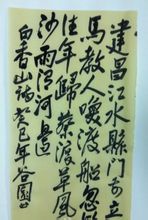 建昌江水縣門前立
馬教人喚渡船忽似
往年歸蔡渡草風
沙雨渭河邊
白香山詩癸巳年谷園